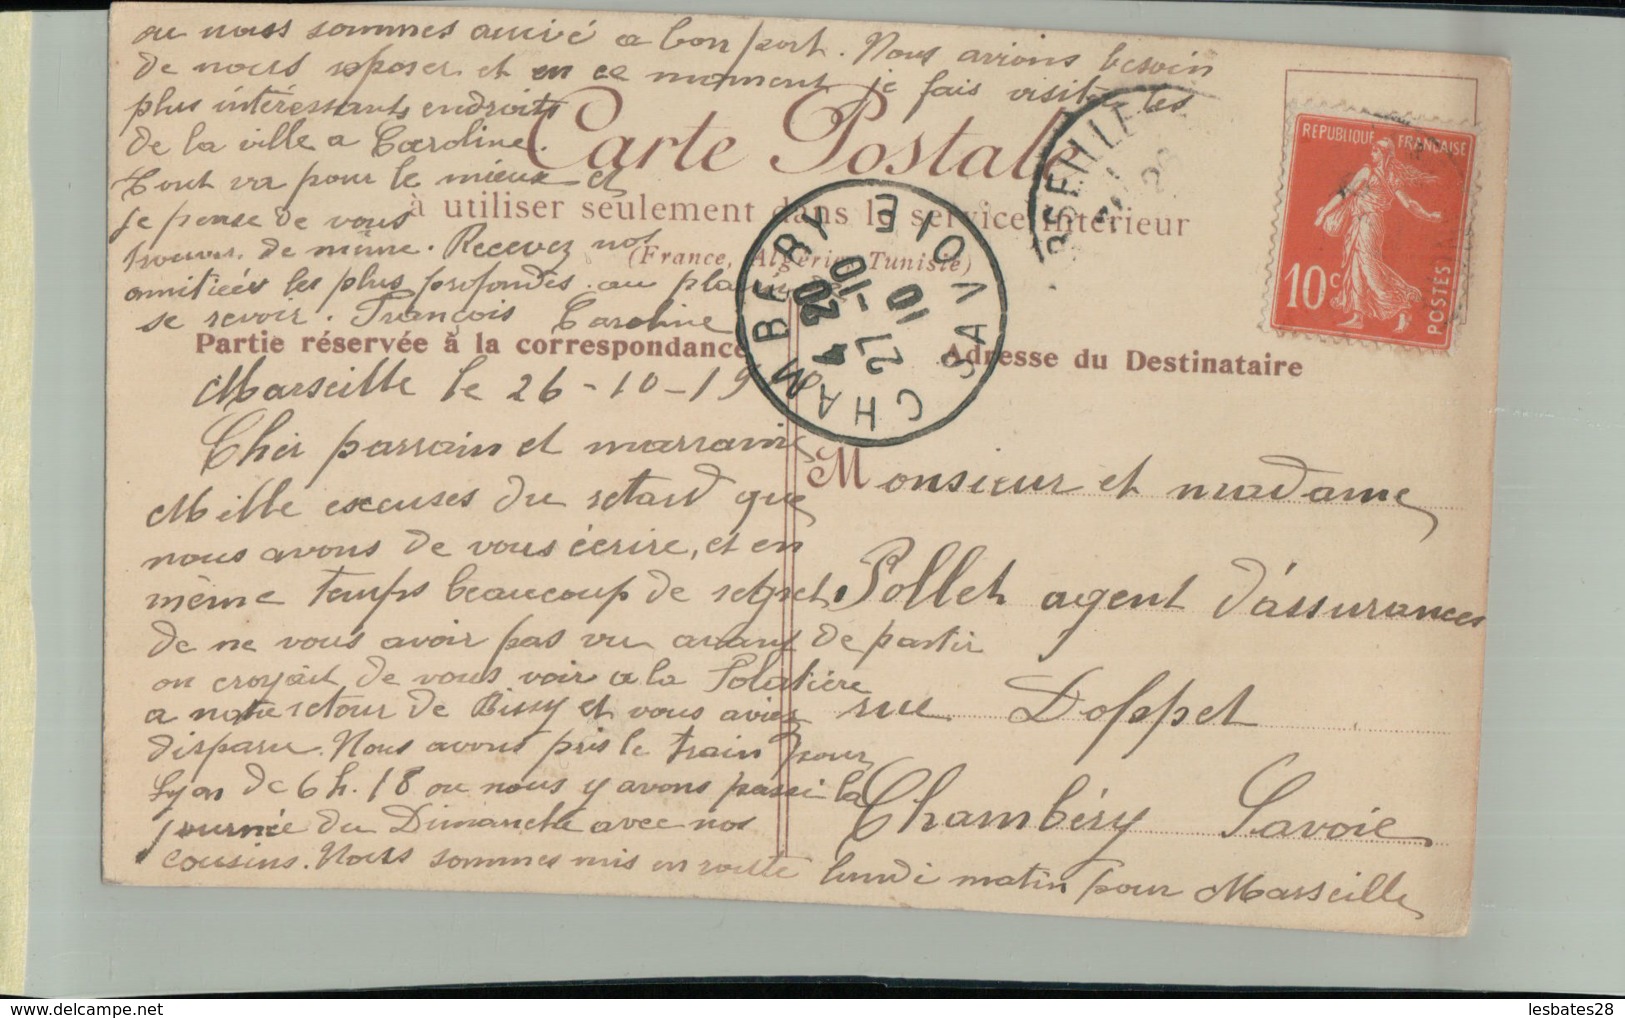 Carte Postale
à utiliser seulement dans le service intérieur
(France, Algérie, Tunisie)
Partie réservée à la correspondance
Adresse du Destinataire
REPUBLIQUE FRANÇAISE
10c
POSTES
CHAMBERY SAVOIE
4 20
27-10
10
Marseille le 26-10-19
Cher parrain et marraine
Mille excuses du retard que
nous avons de vous écrire, et en
même temps beaucoup de regret
de ne vous avoir pas vu avant de partir
on croyait de vous voir a la
a notre retour de Bissy et vous aviez
disparu. Nous avons pris le train pour
Lyon de 6 h. 18 ou nous y avons passé la
journée du Dimanche avec nos
cousins. Nous sommes mis en route lundi matin pour Marseille
ou nous sommes arrivé a bon port. Nous avions besoin
de nous reposer et en ce moment je fais visiter les
plus intéressants endroits
de la ville a Caroline.
Tout va pour le mieux et
je pense de vous
trouver de même. Recevez nos
amitiées les plus profondes au plaisir de
se revoir. François Caroline
Monsieur et madame
Pollet agent d'assurances
rue Doppet
Chambéry Savoie
lesbates28